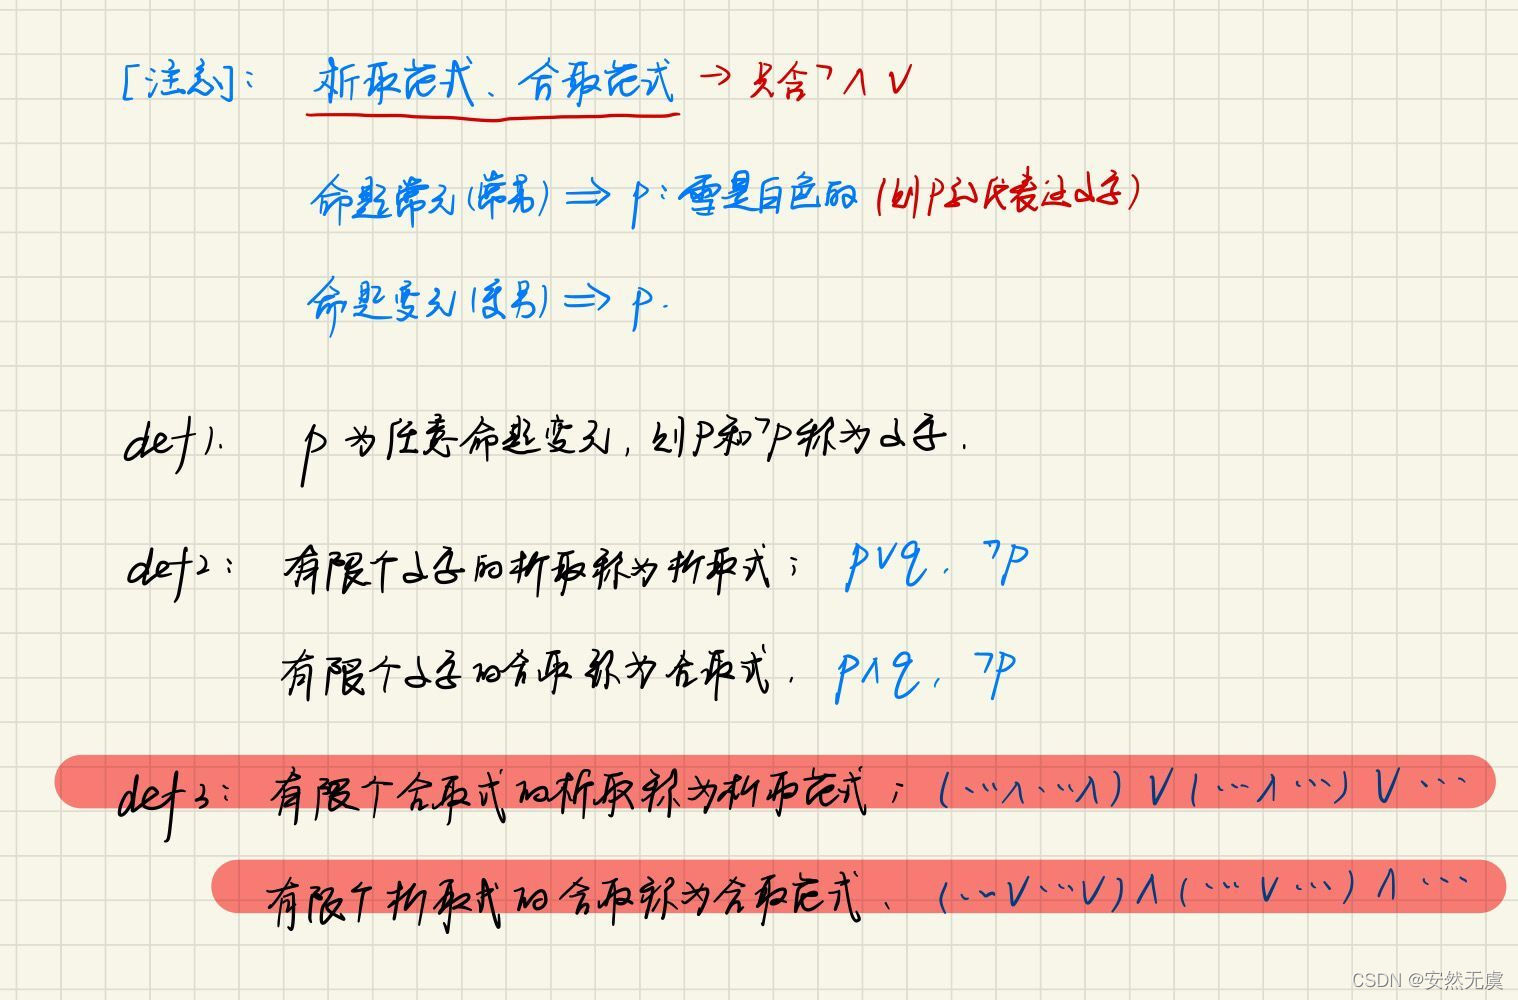 [注意]: 析取范式、合取范式 → 只含 ¬ ∧ ∨
命题常元(常号) ⇒ p: 雪是白色的 (则p可代表这句子)
命题变元(变号) ⇒ p.
def1. p为任意命题变元, 则p和¬p称为文字.
def2: 有限个文字的析取称为析取式; p∨q, ¬p
有限个文字的合取称为合取式. p∧q, ¬p
def3: 有限个合取式的析取称为析取范式; (…∧…∧) ∨ (…∧…) ∨ …
有限个析取式的合取称为合取范式. (…∨…∨) ∧ (…∨…) ∧ …
CSDN @安然无虞